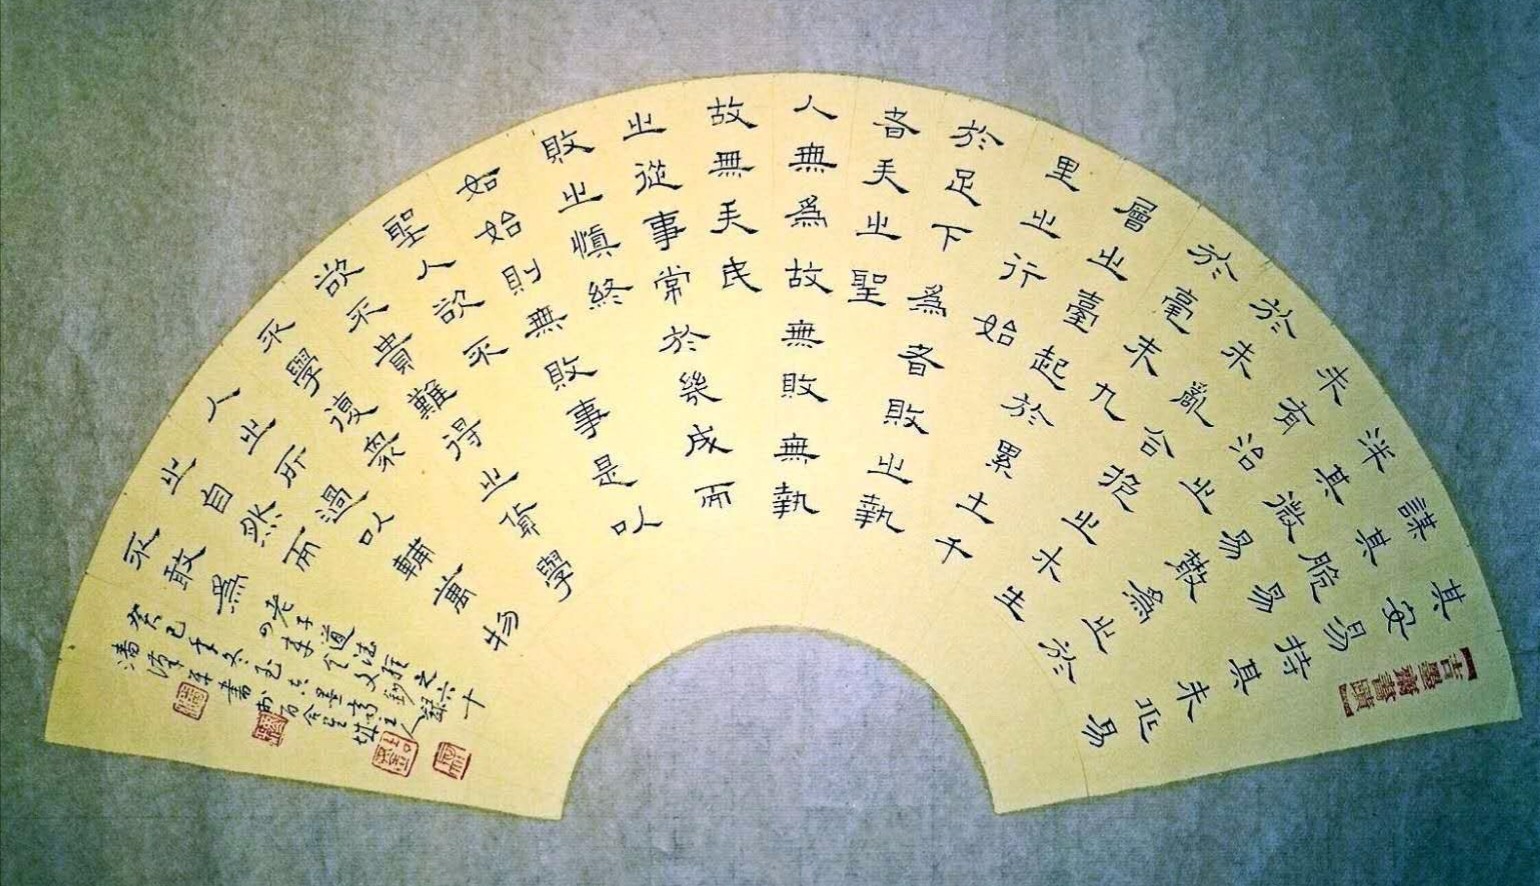 其安易持其未兆易
謀其脆易
泮其微易散為之於
未有治之
於未亂合抱之木生
於毫末九
層之臺起於累土千
里之行始
於足下為者敗之執
者失之聖
人無為故無敗無執
故無失民
之從事常於幾成而
敗之慎終
如始則無敗事是以
聖人欲不
欲不貴難得之貨學
不學復衆
人之所過以輔萬物
之自然而
不敢為
老子道德經之六十
四章
癸巳年冬